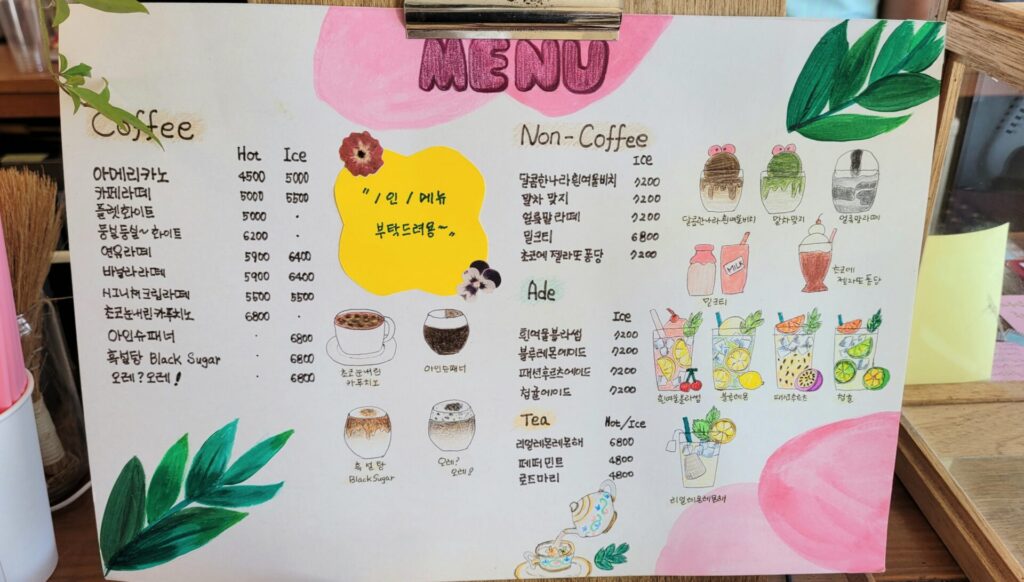 MENU
Coffee
Hot Ice
아메리카노 4500 5000
카페라떼 5000 5500
플랫화이트 5000 ·
둥실둥실~ 화이트 6200 ·
연유라떼 5900 6400
바닐라라떼 5900 6400
시그니처크림라떼 5500 5500
초코눈내린카푸치노 6800 ·
아인슈패너 · 6800
흑설탕 Black Sugar · 6800
오레?오레! 6800
"1인 1메뉴
부탁드려용~"
초코눈내린
카푸치노
아인슈패너
흑설탕
Black Sugar
오레?
오레!
Non-Coffee
Ice
달콤한나라흰여울비치 7200
말차 맞지 7200
얼룩말라떼 7200
밀크티 6800
초코에 젤라또퐁당 7200
달콤한나라흰여울비치
말차맞지
얼룩말라떼
MILK
밀크티
초코에
젤라또퐁당
Ade
Ice
흰여울블라썸 7200
블루레몬에이드 7200
패션후르츠에이드 7200
청귤에이드 7200
흰여울블라썸
블루레몬
패션후르츠
청귤
Tea
Hot/Ice
리얼레몬레몬해 6800
페퍼민트 4800
로즈마리 4800
리얼레몬레몬해